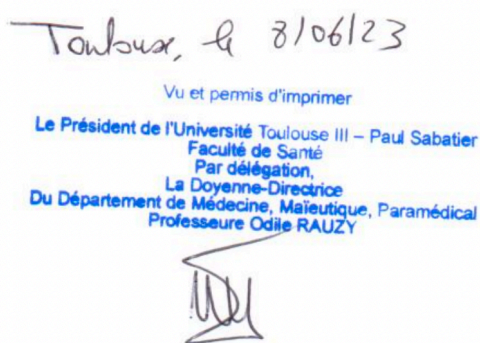 Toulouse, le 8/06/23
Vu et permis d'imprimer
Le Président de l'Université Toulouse III – Paul Sabatier
Faculté de Santé
Par délégation,
La Doyenne-Directrice
Du Département de Médecine, Maïeutique, Paramédical
Professeure Odile RAUZY